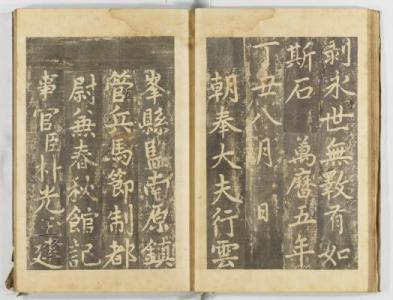 剥永世無斁有如
斯石 萬曆五年
丁丑八月 日
朝奉大夫行雲
峯縣監南原鎮
管兵馬節制都
尉兼春秋館記
事官臣朴光玉建